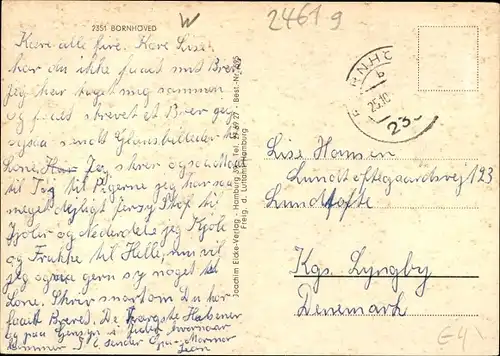 2351 BORNHÖVED
W
24619
Kære alle fire. Kære Lise
har du ikke faaet mit Brev
jeg har taget mig sammen
og faaet skrevet et Brev jeg
ogsaa sendt Glansbilleder til
Lone. Jeg skrev ogsaa
til Tøj til Pigerne jeg har saa
meget dejligt Jersy Stof til
Kjoler og Nederdele jeg Kjole
og Frakke til Helle, nu vil
jeg ogsaa gern sy noget til
Lone. Skriv snart om Du har
faaet Brevet. De
og paa Gensyn
kommer I sender Mormor
Joachim Eicke-Verlag - Hamburg Tel. Best.-Nr.
Freig. d. Luftamt Hamburg
BORNHÖ
b
25.10
23
Lise Hansen
Lundtoftegaardsvej 123
Lundtofte
Kgs. Lyngby
Denemark